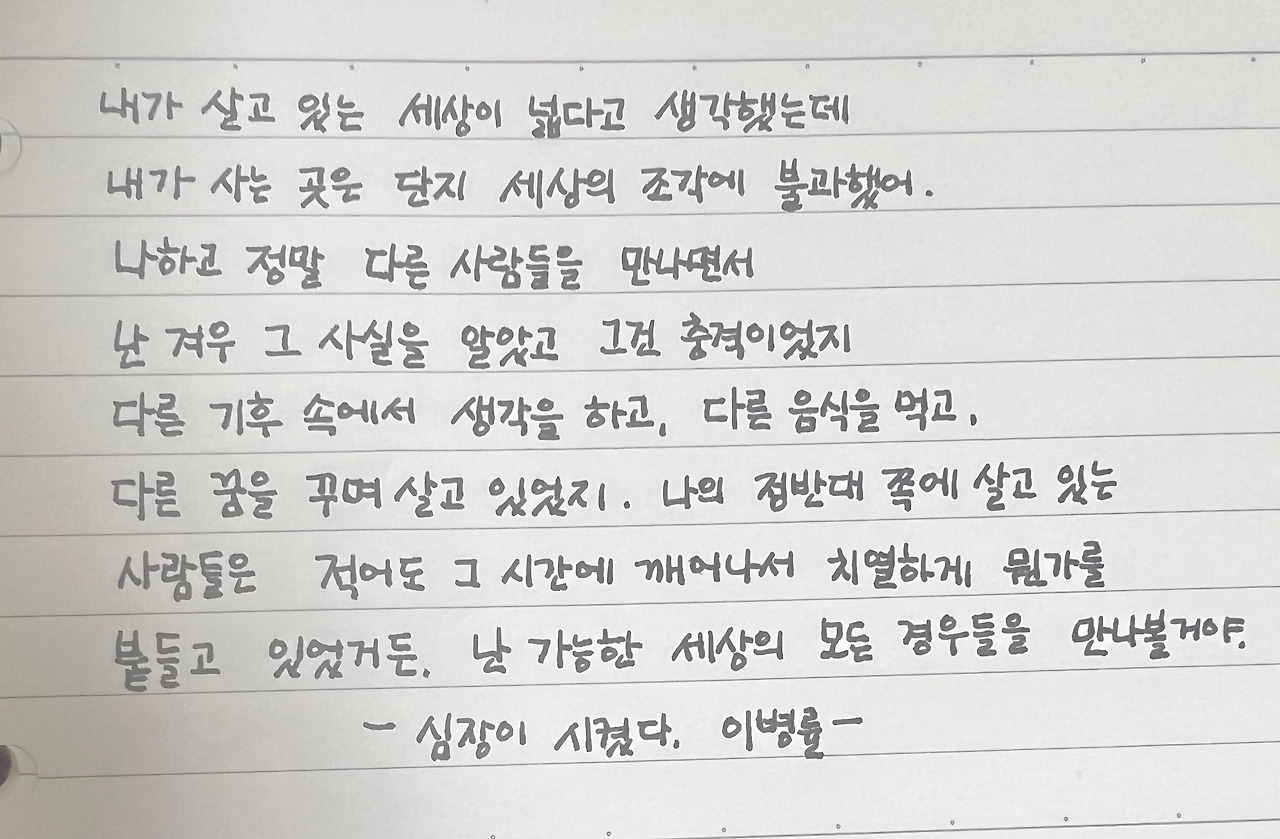 내가 살고 있는 세상이 넓다고 생각했는데
내가 사는 곳은 단지 세상의 조각에 불과했어.
나하고 정말 다른 사람들을 만나면서
난 겨우 그 사실을 알았고 그건 충격이었지
다른 기후 속에서 생각을 하고, 다른 음식을 먹고,
다른 꿈을 꾸며 살고 있었지. 나의 정반대 쪽에 살고 있는
사람들은 적어도 그 시간에 깨어나서 치열하게 뭔가를
붙들고 있었거든. 난 가능한 세상의 모든 경우들을 만나볼거야.
- 심장이 시켰다. 이병률 -